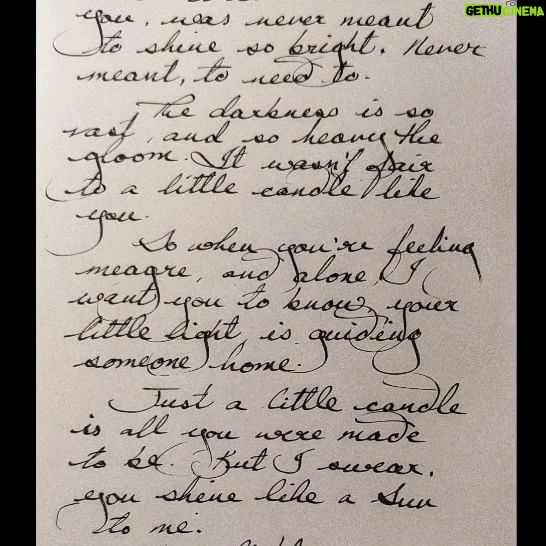 GETHU CINEMA
you, was never meant
to shine so bright. Never
meant, to need to.
The darkness is so
vast, and so heavy the
gloom. It wasn't fair
to a little candle like
you.
So when you're feeling
meagre, and alone, I
want you to know, your
little light is guiding
someone home.
Just a little candle
is all you were made
to be. But I swear,
you shine like a Sun
to me.